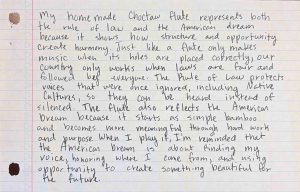 My home made Choctaw flute represents both
the rule of law and the American dream
because it shows how structure and opportunity
create harmony. Just like a flute only makes
music when its holes are placed correctly, our
country only works when laws are fair and
followed by everyone. The Rule of Law protects
voices that were once ignored, including Native
Cultures, so they can be heard instead of
silenced. The flute also reflects the American
Dream because it starts as simple bamboo
and becomes more meaningful through hard work
and purpose. When I play it, I'm reminded that
the American Dream is about finding my
voice, honoring where I came from, and using
opportunity to create something beautiful for
the future.